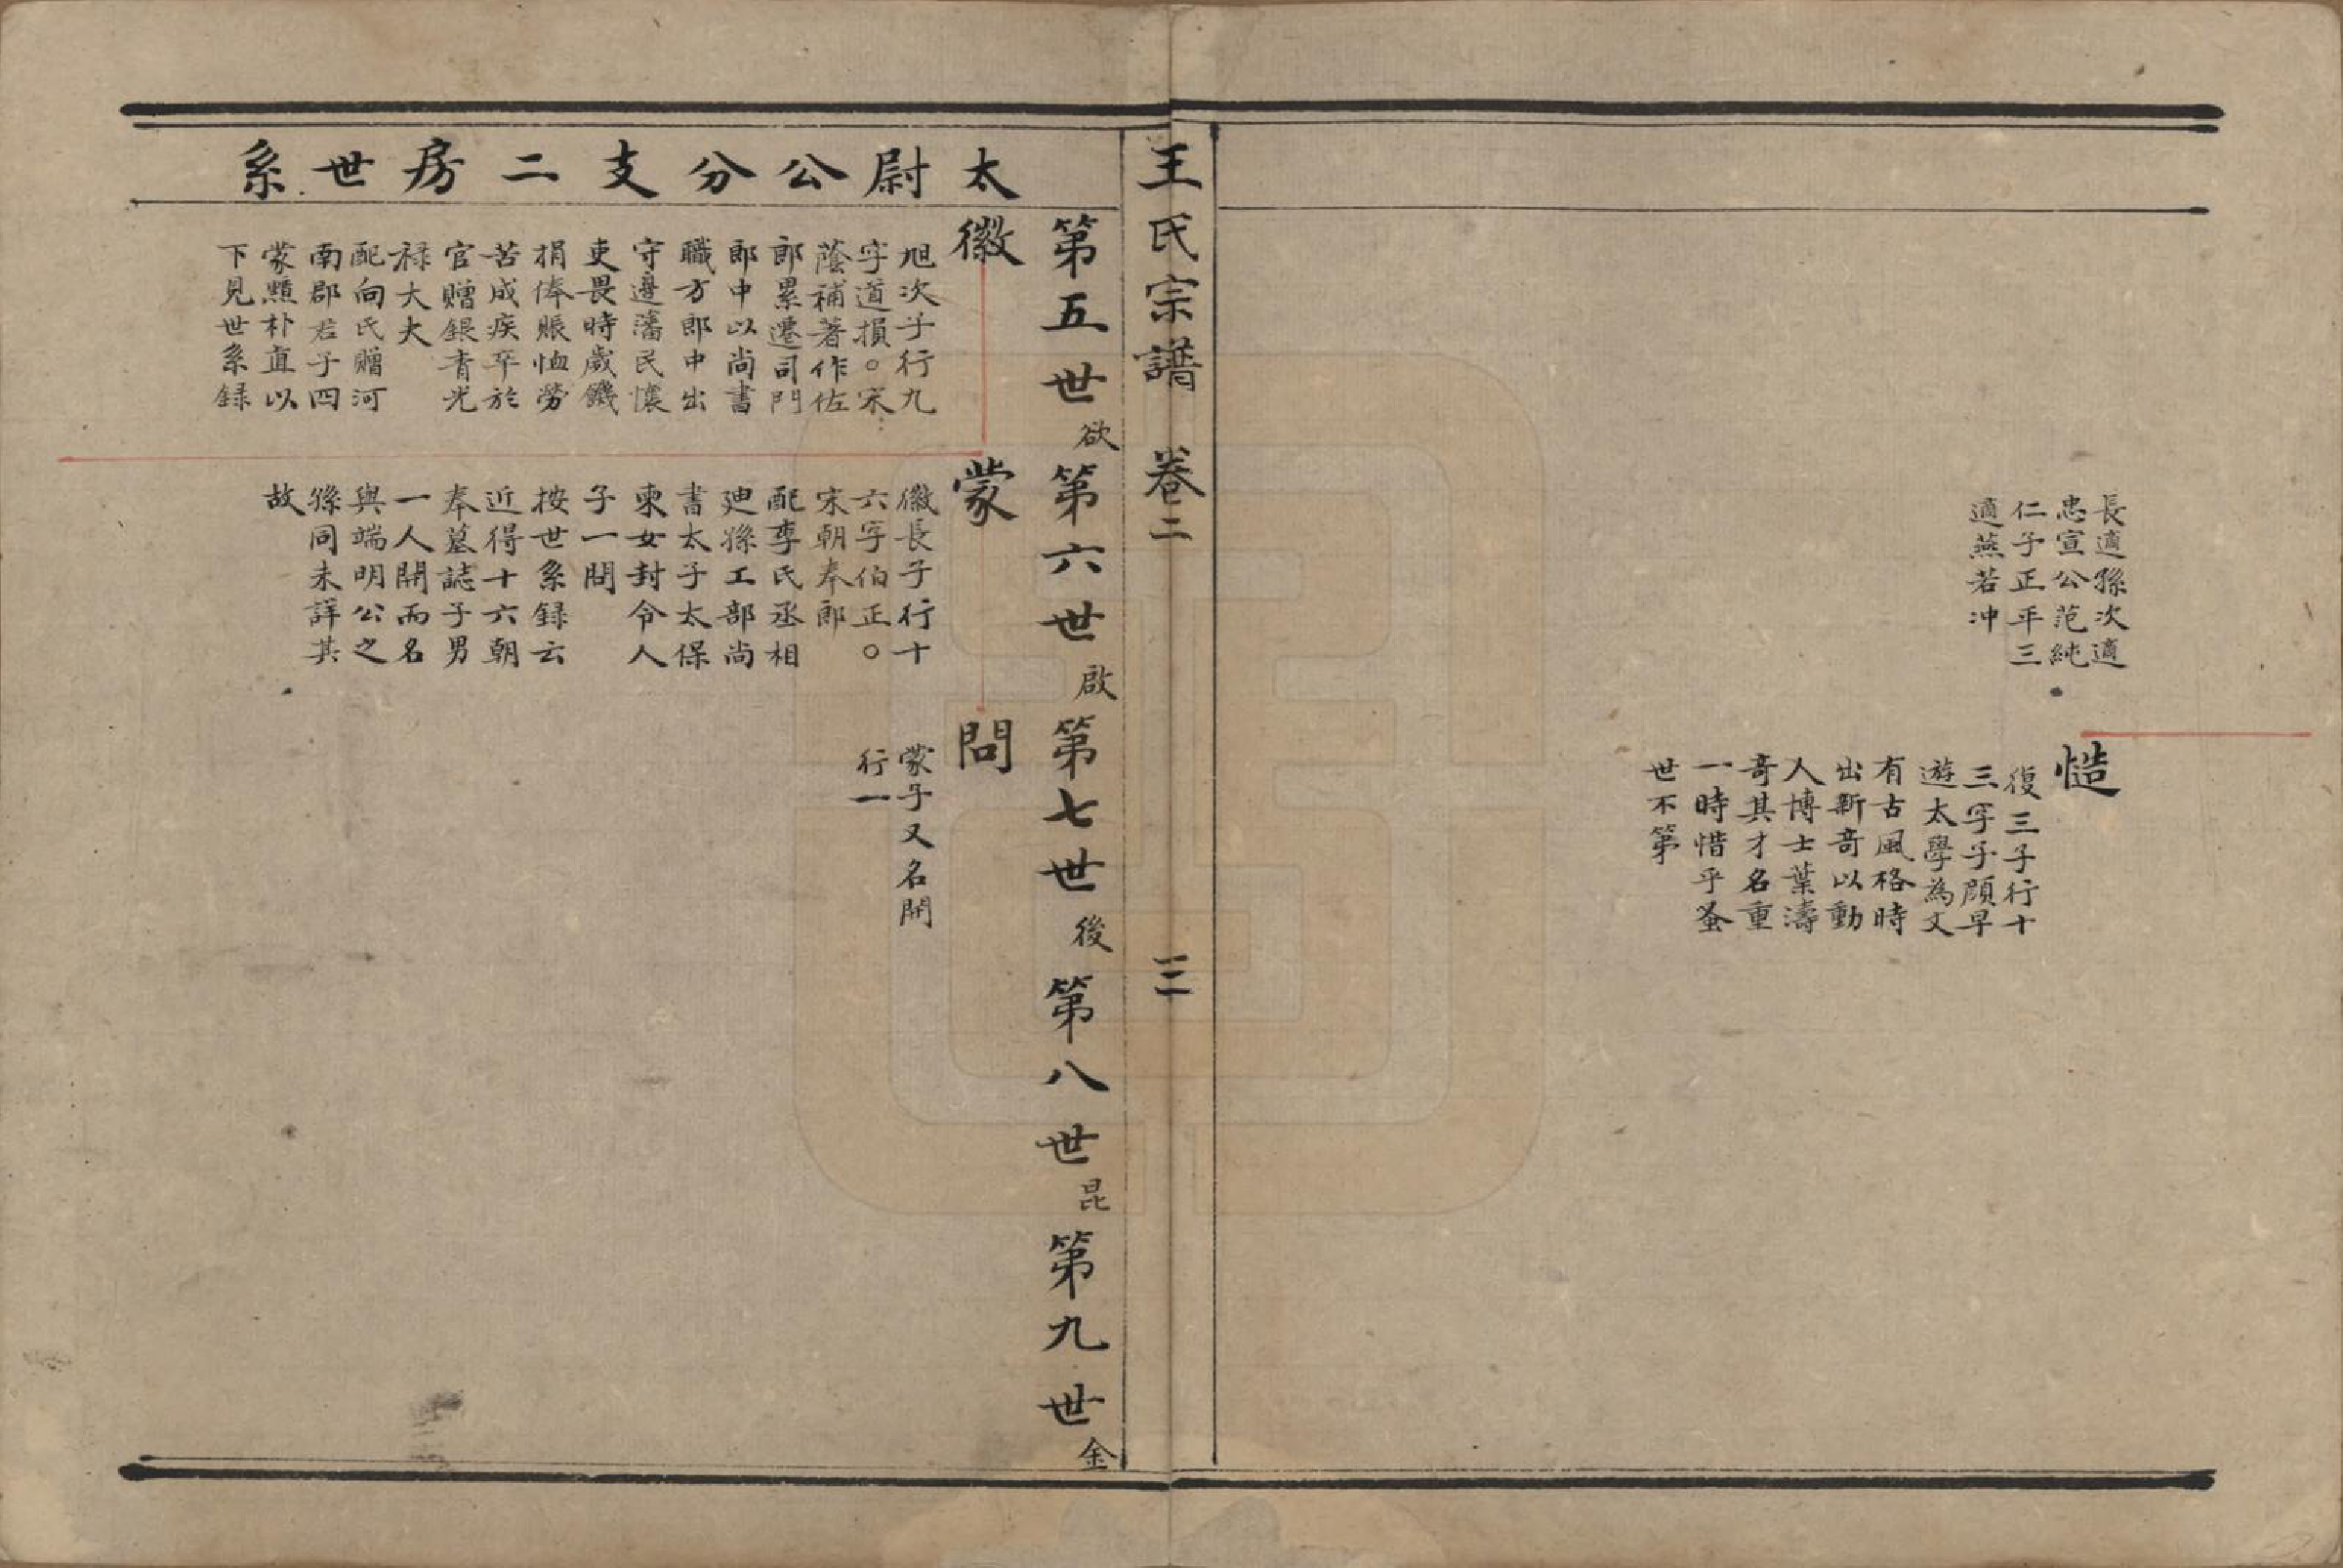 長適孫次適
忠宣公范純
仁子正平三
適燕若冲
慥
復三子行十
三字子顔早
遊太學為文
有古風格時
出新竒以動
人博士葉濤
竒其才名重
一時惜乎蚤
世不第
王氏宗譜 卷二 三
太尉公分支二房世系
第五世欲第六世啟第七世後第八世昆第九世金
徽
旭次子行九
字道損○宋
蔭補著作佐
郎累遷司門
郎中以尚書
職方郎中出
守邊藩民懷
吏畏時歲饑
捐俸賑恤勞
苦成疾卒於
官贈銀青光
禄大夫
配向氏贈河
南郡君子四
蒙顗朴直以
下見世系録
蒙
徽長子行十
六字伯正○
宋朝奉郎
配李氏丞相
廸孫工部尚
書太子太保
柬女封令人
子一問
按世系録云
近得十六朝
奉墓誌子男
一人開而名
與端明公之
孫同未詳其
故
問
蒙子又名開
行一